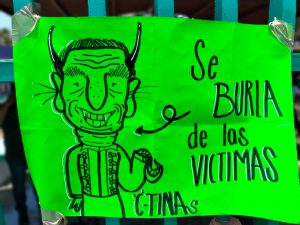 Se
BURLA
de las
VICTIMAS
C-TINAS